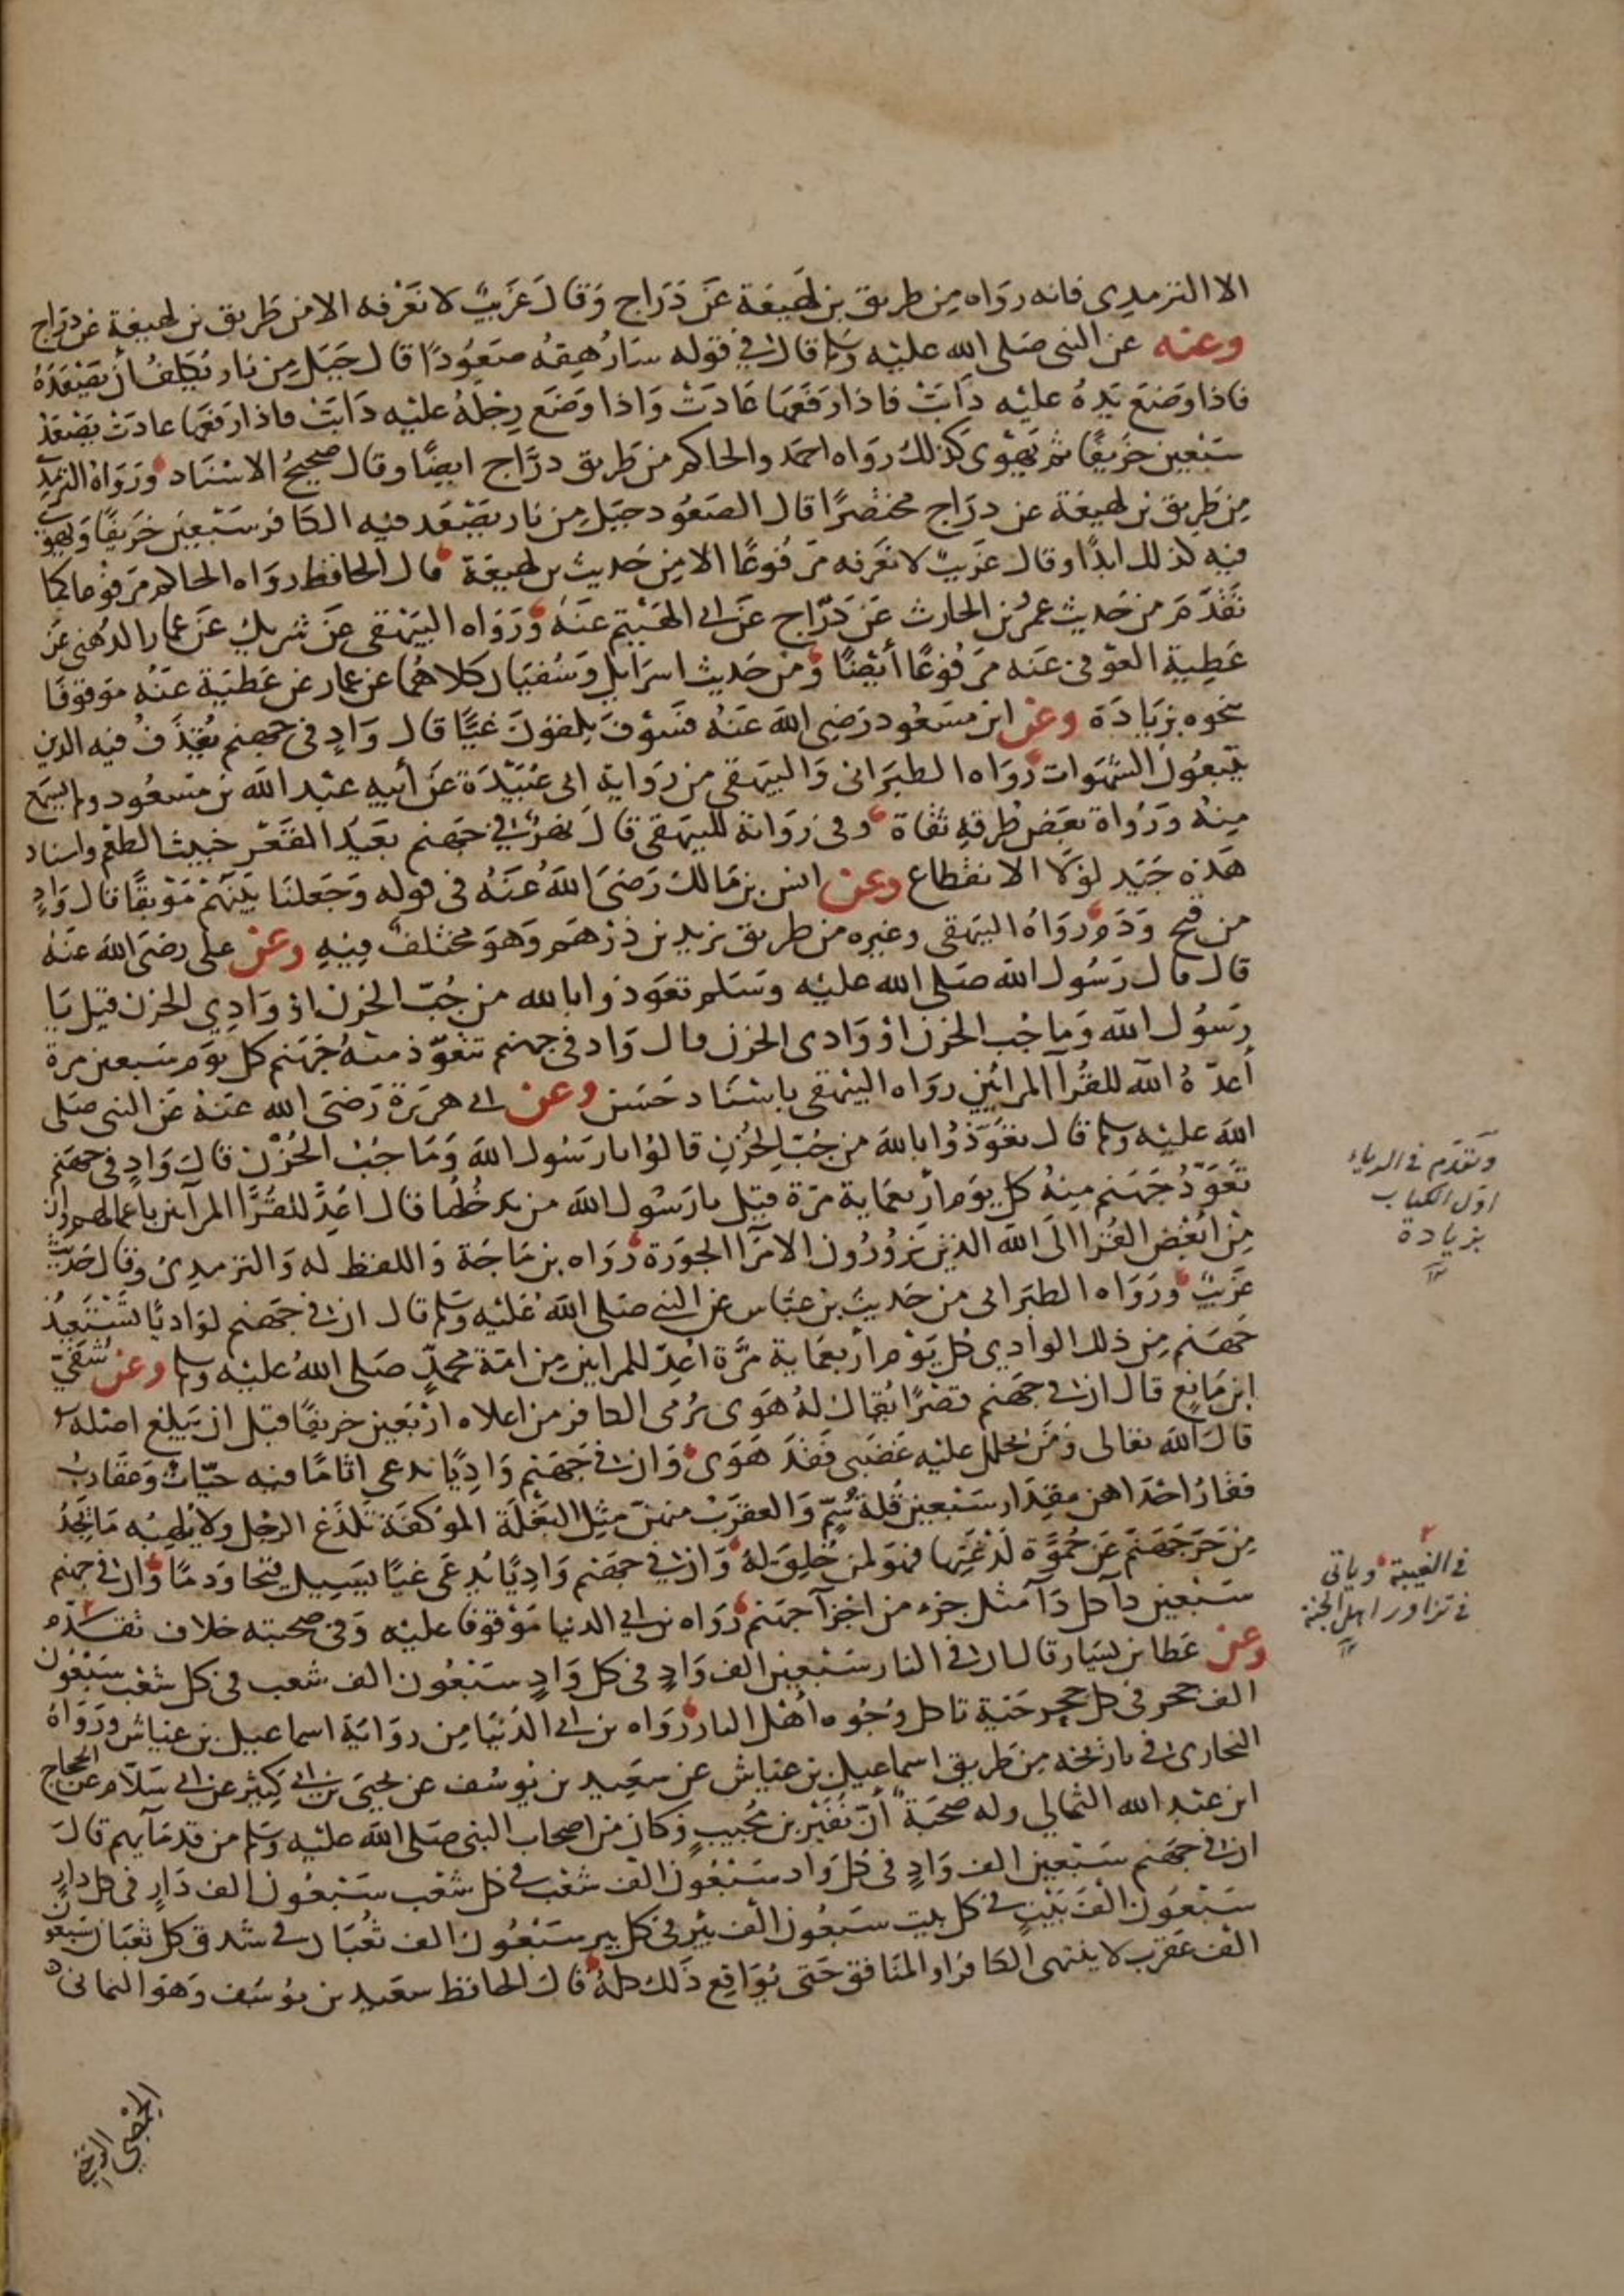 الا الترمذي فانه رواه من طريق بن لهيعة عن دراج وقال غريب لا نعرفه الا من طريق بن لهيعة عن دراج
وعنه عن النبي صلى الله عليه وسلم قال في قوله سارهقه صعودا قال جبل من نار يكلف أن يصعده
فاذا وضع يده عليه دابت فاذا رفعها عادت واذا وضع رجله عليه دابت فاذا رفعها عادت يصعد
سبعين خريفا ثم يهوي كذلك رواه احمد والحاكم من طريق دراج ايضا وقال صحيح الاسناد ورواه الترمذي
من طريق بن لهيعة عن دراج مختصرا قال الصعود جبل من نار يصعد فيه الكافر سبعين خريفا ويهوي
فيه كذلك ابدا وقال غريب لا نعرفه مرفوعا الا من حديث بن لهيعة قال الحافظ رواه الحاكم مرفوعا كما
تقدم من حديث عمر بن الحارث عن دراج عن ابي الهيثم عنه ورواه البيهقي عن شريك عن عمار الدهني عن
عطية العوفي عنه مرفوعا أيضا ومن حديث اسرايل وسفيان كلاهما عن عمار عن عطية عنه موقوفا
بنحوه بزيادة وعن ابن مسعود رضي الله عنه فسوف يلقون غيا قال واد في جهنم يقذف فيه الذين
يتبعون الشهوات رواه الطبراني والبيهقي من رواية ابي عبيدة عن أبيه عبد الله بن مسعود ولم يسمع
منه ورواة بعض طرقه ثقاة وفي رواية للبيهقي قال نهر في جهنم بعيد القعر خبيث الطعم واسناد
هذه جيد لولا الانقطاع وعن انس بن مالك رضي الله عنه في قوله وجعلنا بينهم موبقا قال واد
من قيح ودم رواه البيهقي وغيره من طريق يزيد بن درهم وهو مختلف فيه وعن علي رضي الله عنه
قال قال رسول الله صلى الله عليه وسلم تعوذوا بالله من جب الحزن او وادي الحزن قيل يا
رسول الله وما جب الحزن او وادي الحزن قال واد في جهنم تتعوذ منه جهنم كل يوم سبعين مرة
أعده الله للقرا المرائين رواه البيهقي باسناد حسن وعن ابي هريرة رضي الله عنه عن النبي صلى
الله عليه وسلم قال تعوذوا بالله من جب الحزن قالوا يا رسول الله وما جب الحزن قال واد في جهنم
تعوذ جهنم منه كل يوم أربعماية مرة قيل يا رسول الله من يدخلها قال اعد للقرا المرآين باعمالهم وان
من ابغض القرا الى الله الذين يزورون الامرا الجورة رواه بن ماجة واللفظ له والترمذي وقال حديث
غريب ورواه الطبراني من حديث بن عباس عن النبي صلى الله عليه وسلم قال ان في جهنم لواديا تستعيذ
جهنم من ذلك الوادي كل يوم أربعماية مرة اعد للمراين من امة محمد صلى الله عليه وسلم وعن شفي
ابن ماتع قال ان في جهنم قصرا يقال له هوى يرمى الكافر من اعلاه اربعين خريفا قبل ان يبلغ اصله
قال الله تعالى ومن يحلل عليه غضبي فقد هوى وان في جهنم واديا يدعى اثاما فيه حيات وعقارب
فقار احداهن مقدار سبعين قلة سم والعقرب منهن مثل البغلة الموكفة تلدغ الرجل ولا يلهيه ما يجد
من حر جهنم عن حموة لدغتها فهو لمن خلق له وان في جهنم واديا يدعى غيا يسيل قيحا ودما وان في جهنم
سبعين دآ كل دآ مثل جزء من اجزآ جهنم رواه بن ابي الدنيا موقوفا عليه وفي صحبته خلاف تقدم
وعن عطا بن يسار قال ان في النار سبعين الف واد في كل واد سبعون الف شعب في كل شعب سبعون
الف جحر في كل جحر حية تاكل وجوه اهل النار رواه بن ابي الدنيا من رواية اسماعيل بن عياش ورواه
البخاري في تاريخه من طريق اسماعيل بن عياش عن سعيد بن يوسف عن يحيى بن ابي كثير عن ابي سلام عن الحجاج
ابن عبد الله الثمالي وله صحبة أن نفير بن مجيب وكان من اصحاب النبي صلى الله عليه وسلم من قدمآيهم قال
ان في جهنم سبعين الف واد في كل واد سبعون الف شعب في كل شعب سبعون الف دار في كل دار
سبعون الف بيت في كل بيت سبعون ألف بئر في كل بير سبعون الف ثعبان في شدق كل ثعبان سبعون
الف عقرب لا ينتهي الكافر او المنافق حتى يواقع ذلك كله قال الحافظ سعيد بن يوسف وهو اليماني
وتقدم في الرياء
اول الكتاب
بزيادة
١٢
في الغيبة وياتي
في تزاور اهل الجنة
١٢
الحمصي الرحبي